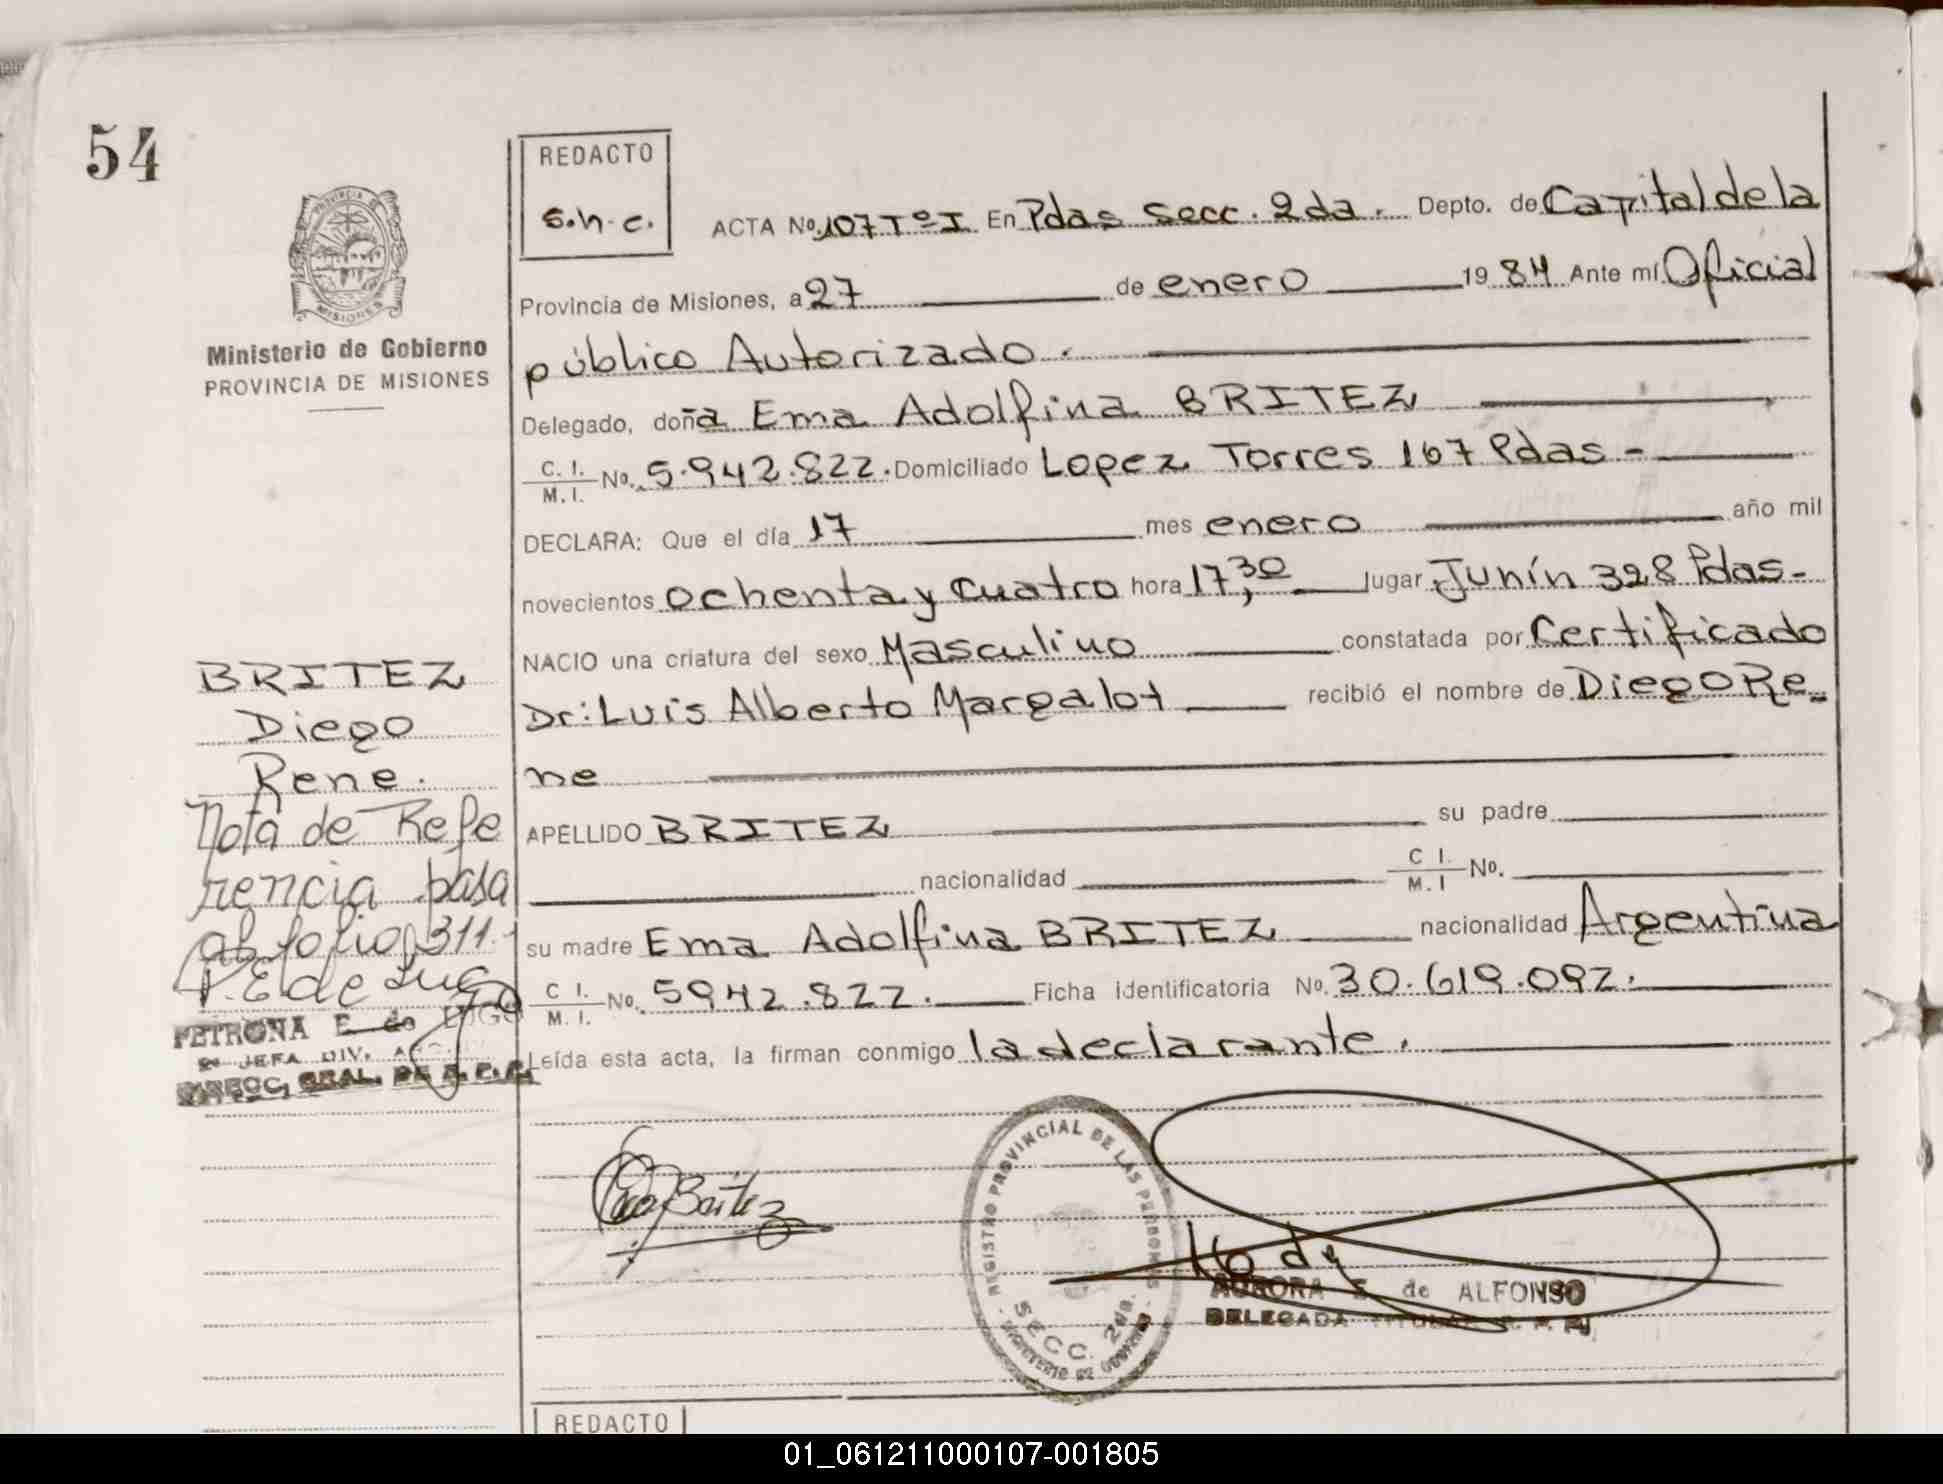 54
REDACTO
S.h.c.
PROVINCIA DE
MISIONES
Ministerio de Gobierno
PROVINCIA DE MISIONES
ACTA No. 107 Tº I En Pdas Secc. 2da. Depto. de Capital de la
Provincia de Misiones, a 27 de enero 1984 Ante mí Oficial
público Autorizado.
Delegado, doña Ema Adolfina BRITEZ
C. I. / M. I. No. 5.942.822. Domiciliado Lopez Torres 167 Pdas -
DECLARA: Que el día 17 mes enero año mil
novecientos ochenta y cuatro hora 17,30 lugar Junín 328 Pdas-
NACIO una criatura del sexo Masculino constatada por Certificado
Dr: Luis Alberto Margalot recibió el nombre de Diego Re-
ne
APELLIDO BRITEZ su padre
nacionalidad C I. / M. I No.
su madre Ema Adolfina BRITEZ nacionalidad Argentina
C I. / M. I. No. 5942.822. Ficha identificatoria No. 30.619.092.
Leída esta acta, la firman conmigo la declarante.
BRITEZ
Diego
Rene.
Nota de Refe
rencia pasa
al folio 311.
P. E de Lugo
PETRONA E. de LUGO
JEFA DIV.
DIRECC. GRAL. DE R. P. P.
Britez
REGISTRO PROVINCIAL DE LAS PERSONAS
SECC. 2da.
MINISTERIO DE GOBIERNO
AURORA E. de ALFONSO
DELEGADA TITULAR R. P. P.
REDACTO
01_061211000107-001805